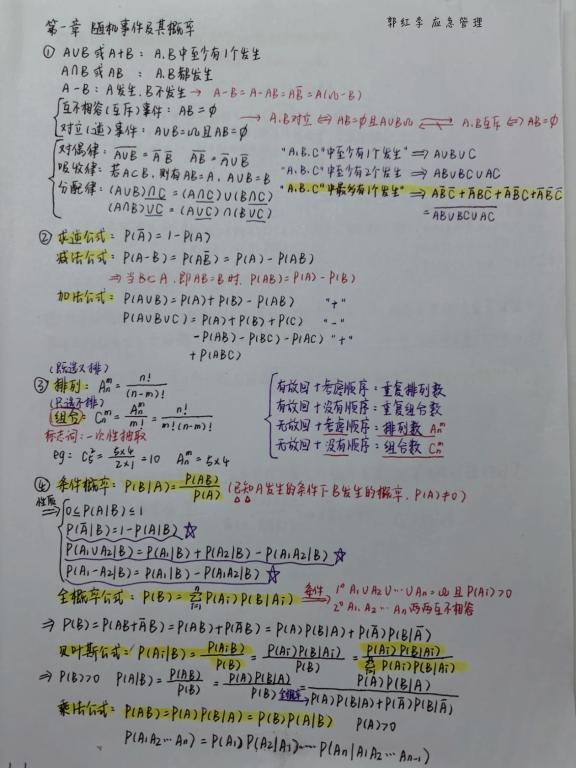 郭红李 应急管理
第一章 随机事件及其概率
① A∪B 或 A+B： A.B中至少有1个发生
A∩B 或 AB ： A.B都发生
A-B：A发生.B不发生 → A-B=A-AB=AB̅=A(Ω-B)
互不相容(互斥)事件：AB=∅
对立(逆)事件：A∪B=Ω且AB=∅ → A.B对立 ⇔ AB=∅且A∪B=Ω ⇌ A.B互斥 ⇔ AB=∅
对偶律：\overline{A∪B}=A̅ B̅ \overline{AB}=A̅∪B̅ "A.B.C"中至少有1个发生" ⇒ A∪B∪C
吸收律：若A⊂B，则有AB=A，A∪B=B "A.B.C"中至少有2个发生" ⇒ AB∪BC∪AC
分配律：(A∪B)∩C=(A∩C)∪(B∩C) "A.B.C"中最多有1个发生" ⇒ A̅B̅C̅+AB̅C̅+A̅BC̅+A̅B̅C
(A∩B)∪C=(A∪C)∩(B∪C) =\overline{AB∪BC∪AC}
② 求逆公式：P(A̅)=1-P(A)
减法公式：P(A-B)=P(AB̅)=P(A)-P(AB)
⇒ 当B⊂A，即AB=B时，P(AB̅)=P(A)-P(B)
加法公式：P(A∪B)=P(A)+P(B)-P(AB) "+"
P(A∪B∪C)=P(A)+P(B)+P(C) "-"
-P(AB)-P(BC)-P(AC) "+"
+P(ABC)
(既选又排)
③ 排列：Aₙᵐ=n!/(n-m)!
(只选不排)
组合：Cₙᵐ=Aₙᵐ/m!=n!/m!(n-m)!
标志词：一次性抽取
eg：C₅²=5×4/2×1=10 Aₙᵐ=5×4
有放回+考虑顺序：重复排列数
有放回+没有顺序：重复组合数
无放回+考虑顺序：排列数 Aₙᵐ
无放回+没有顺序：组合数 Cₙᵐ
④ 条件概率：P(B|A)=P(AB)/P(A) (已知A发生的条件下B发生的概率，P(A)≠0)
性质⇒ 0≤P(A|B)≤1
P(A̅|B)=1-P(A|B) ☆
P(A₁∪A₂|B)=P(A₁|B)+P(A₂|B)-P(A₁A₂|B) ☆
P(A₁-A₂|B)=P(A₁|B)-P(A₁A₂|B) ☆
全概率公式：P(B)=∑ⁿᵢ₌₁P(Aᵢ)P(B|Aᵢ) 条件⇒ 1° A₁∪A₂∪…∪Aₙ=Ω且P(Aᵢ)>0
2° A₁、A₂…Aₙ两两互不相容
⇒ P(B)=P(AB+A̅B)=P(AB)+P(A̅B)=P(A)P(B|A)+P(A̅)P(B|A̅)
贝叶斯公式：P(Aᵢ|B)=P(AᵢB)/P(B)=P(Aᵢ)P(B|Aᵢ)/P(B)=P(Aᵢ)P(B|Aᵢ)/∑ⁿᵢ₌₁P(Aᵢ)P(B|Aᵢ)
⇒ P(B)>0 P(A|B)=P(AB)/P(B)=P(A)P(B|A)/P(B) 全概率=P(A)P(B|A)/P(A)P(B|A)+P(A̅)P(B|A̅)
乘法公式：P(AB)=P(A)P(B|A)=P(B)P(A|B) P(A)>0
P(A₁A₂…Aₙ)=P(A₁)P(A₂|A₁)…P(Aₙ|A₁A₂…Aₙ₋₁)